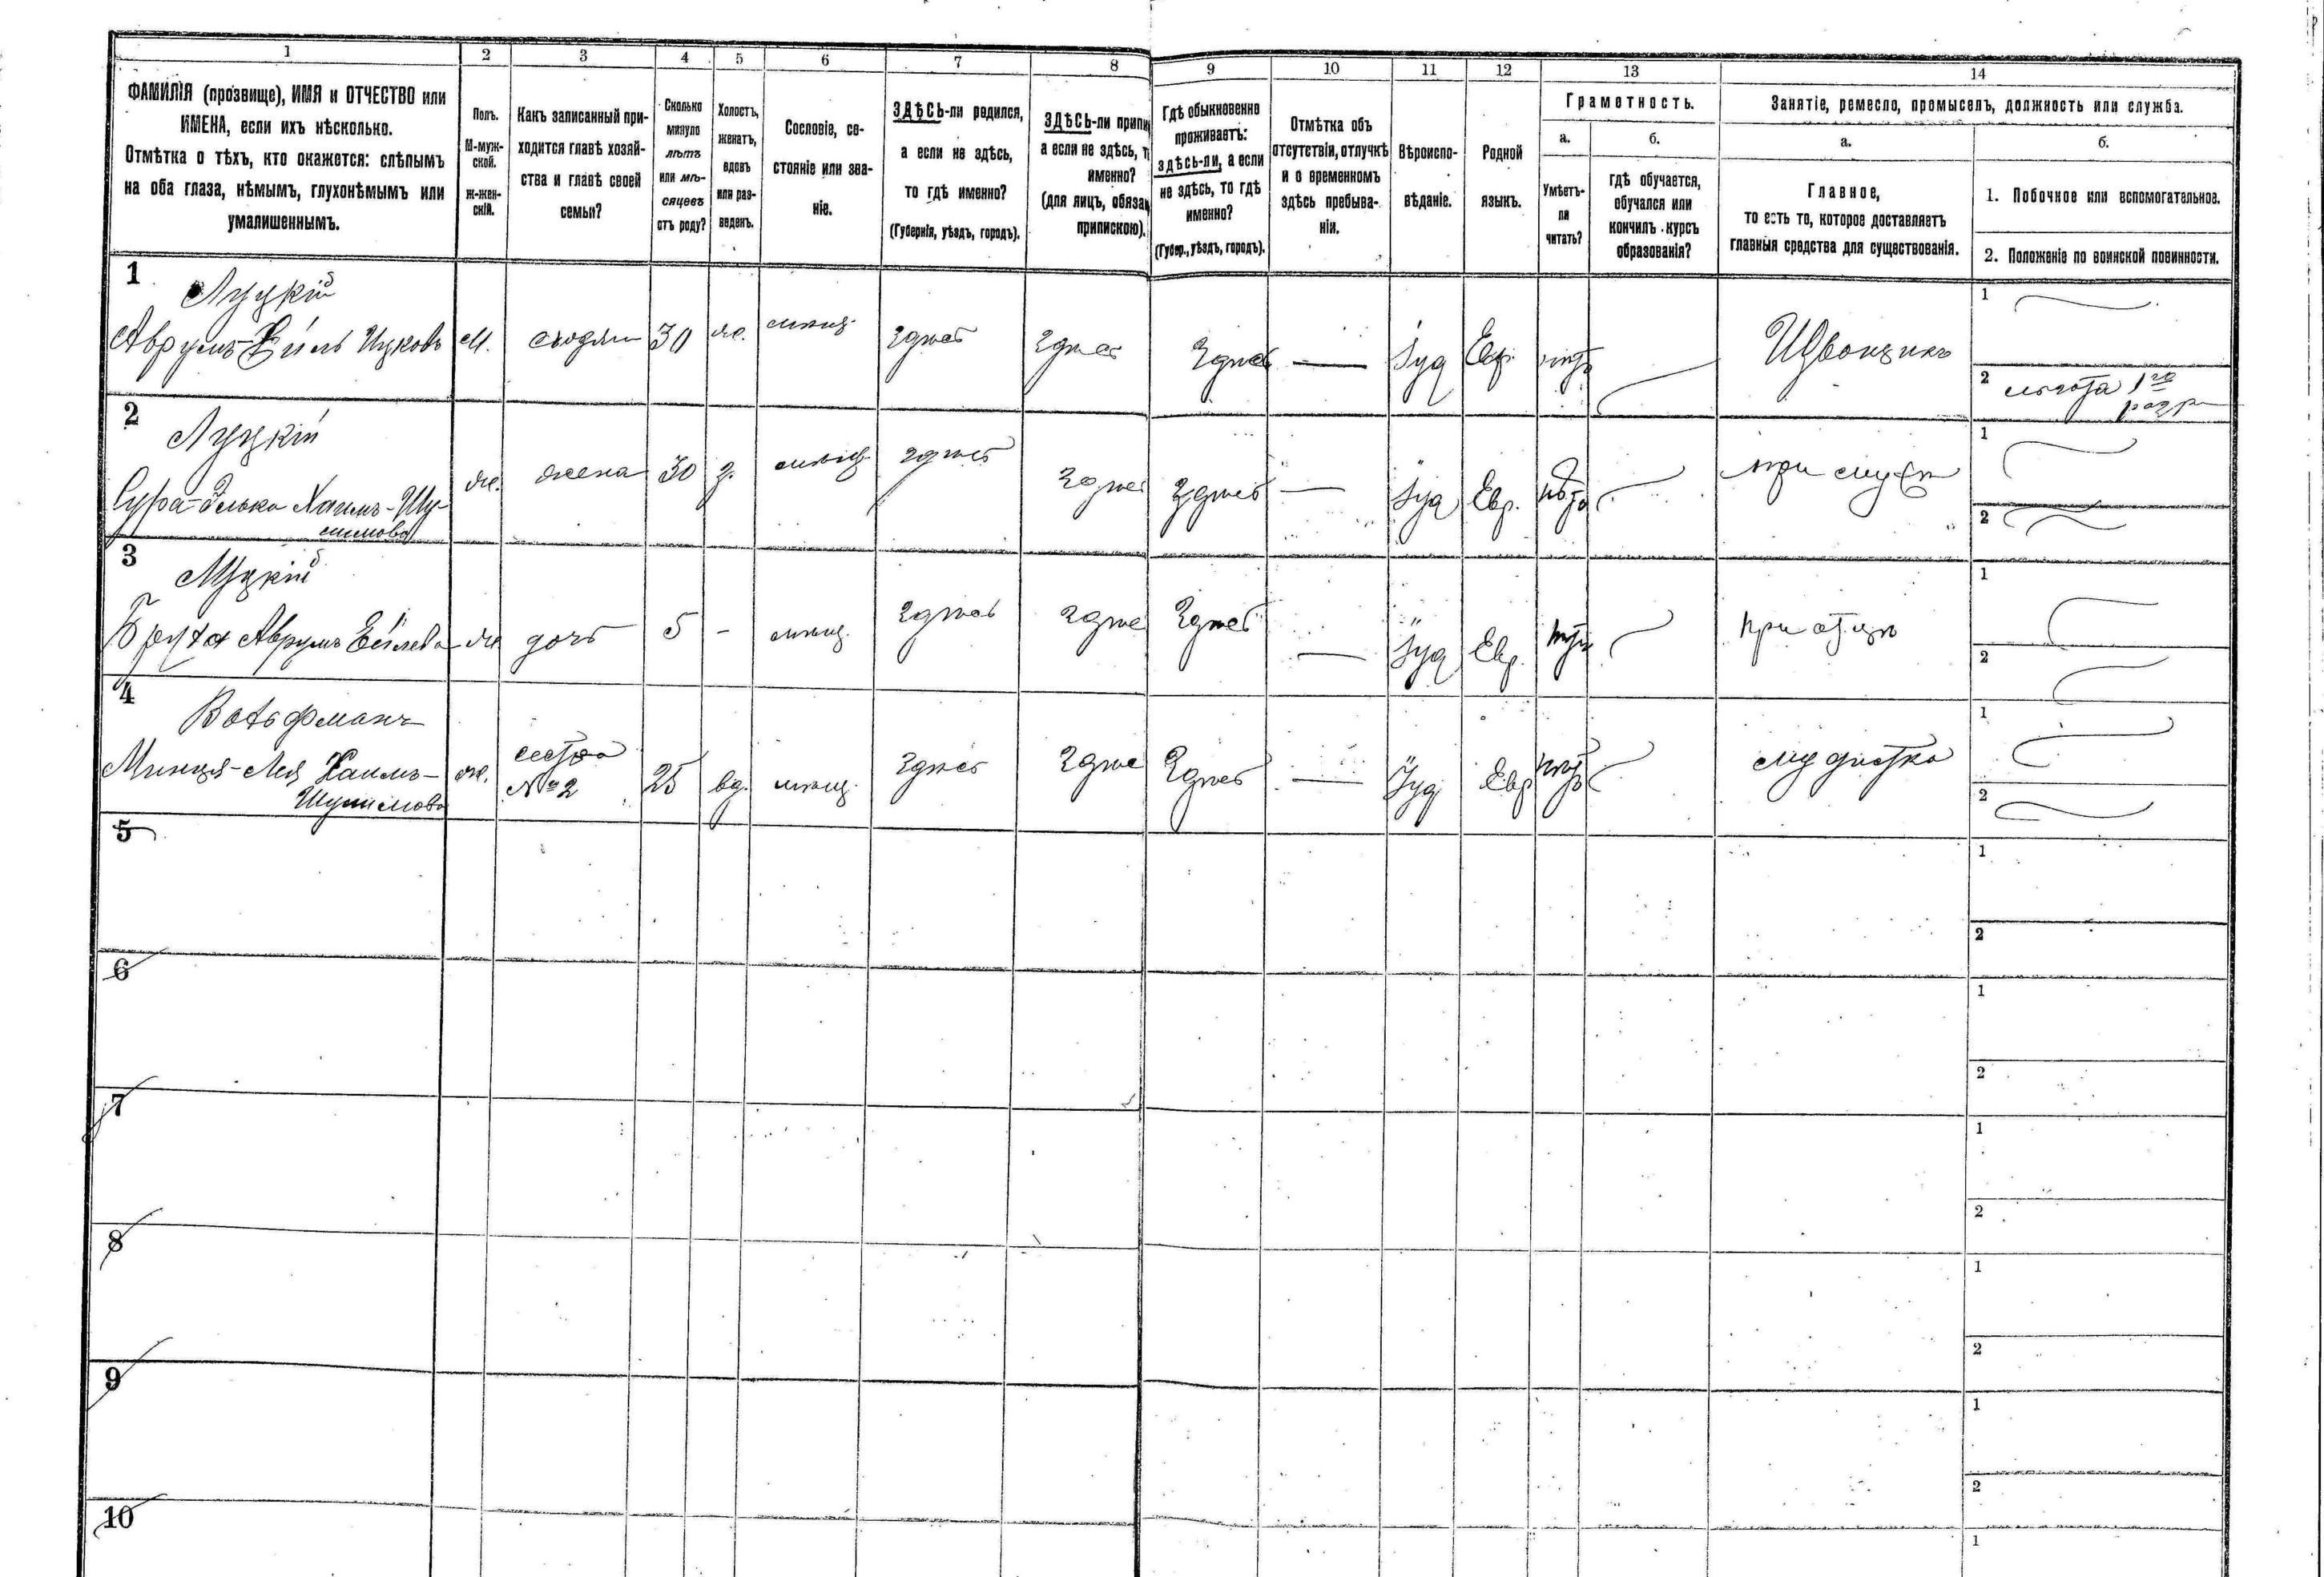 1 2 3 4 5 6 7 8 9 10 11 12 13 14
ФАМИЛІЯ (прозвище), ИМЯ и ОТЧЕСТВО или
ИМЕНА, если ихъ нѣсколько.
Отмѣтка о тѣхъ, кто окажется: слѣпымъ
на оба глаза, нѣмымъ, глухонѣмымъ или
умалишеннымъ.
Полъ.
М-муж-
ской.
Ж-жен-
скій.
Какъ записанный при-
ходится главѣ хозяй-
ства и главѣ своей
семьи?
Сколько
минуло
лѣтъ
или мѣ-
сяцевъ
отъ роду?
Холостъ,
женатъ,
вдовъ
или раз-
веденъ.
Сословіе, со-
стояніе или зва-
ніе.
ЗДѢСЬ-ли родился,
а если не здѣсь,
то гдѣ именно?
(Губернія, уѣздъ, городъ).
ЗДѢСЬ-ли припи
а если не здѣсь, т
именно?
(для лицъ, обяза
припискою).
Гдѣ обыкновенно
проживаетъ:
здѣсь-ли, а если
не здѣсь, то гдѣ
именно?
(Губер., уѣздъ, городъ).
Отмѣтка объ
отсутствіи, отлучкѣ
и о временномъ
здѣсь пребыва-
ніи.
Вѣроиспо-
вѣданіе.
Родной
языкъ.
Грамотность.
а.
Умѣетъ-
ли
читать?
б.
гдѣ обучается,
обучался или
кончилъ курсъ
образованія?
Занятіе, ремесло, промыселъ, должность или служба.
а.
Главное,
то есть то, которое доставляетъ
главныя средства для существованія.
б.
1. Побочное или вспомогательное.
2. Положеніе по воинской повинности.
1
Луцкій
Аврумъ- Ицковъ М. 30 мѣщ. здѣсь здѣсь Здѣсь — Іуд Евр. нѣтъ
1
2 льгота 1го
разр
2
Луцкій
Сура- Хаимъ-Шу-
лимова
же. жена 30 з. мѣщ. здѣсь здѣсь здѣсь — Іуд Евр. нѣтъ при мужѣ
1
2
3
Луцкій
Бруха Аврумъ Ейлева же дочь 5 - мѣщ. здѣсь здѣсь Здѣсь — Іуд Евр. нѣтъ при отцѣ
1
2
4
Вольфманъ
Минця-Лея Хаимъ-
Шулимова
же. сестра
№ 2
25 вд. мѣщ. здѣсь здѣсь Здѣсь — Іуд Евр нѣтъ модистка
1
2
5
1
2
6
1
2
7
1
2
8
1
2
9
1
2
10
1